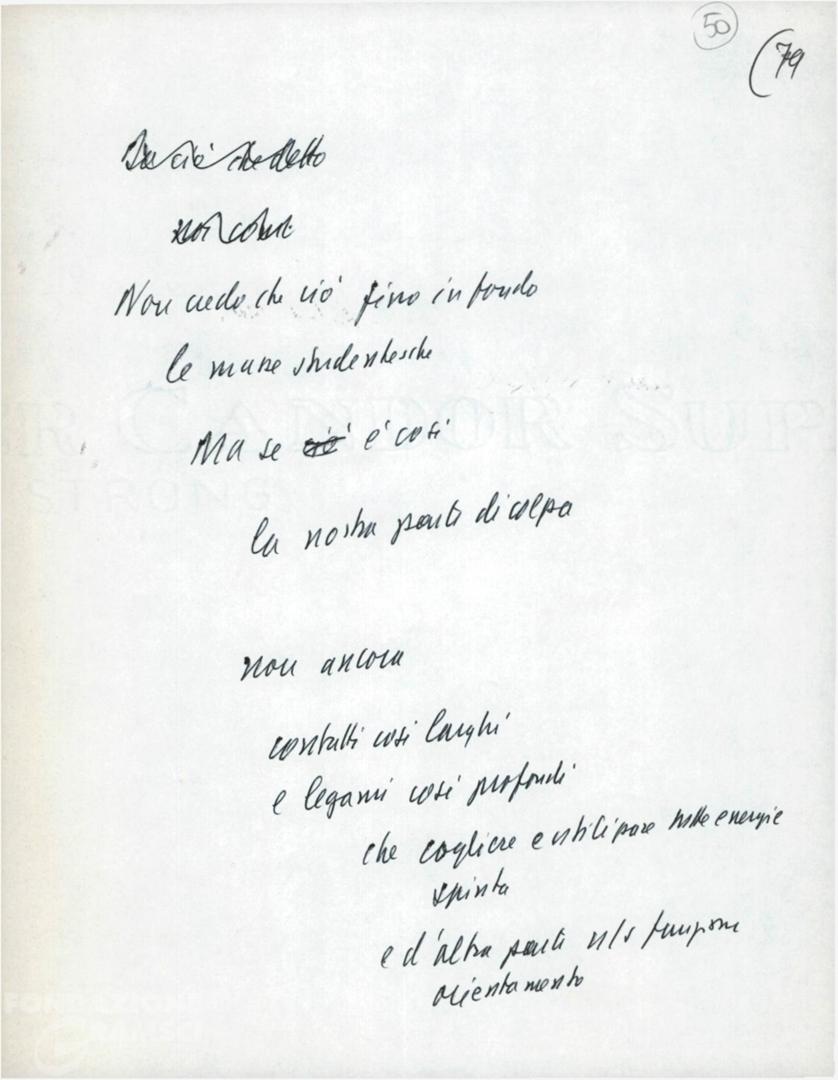 50
(79
Da ciò che detto
noi com
Non credo che ciò fino in fondo
le masse studentesche
Ma se ciò è così
la nostra parte di colpa
non ancora
contatti così larghi
e legami così profondi
che cogliere e utilizzare tutte energie
spinta
e d'altra parte n/s funzione
orientamento